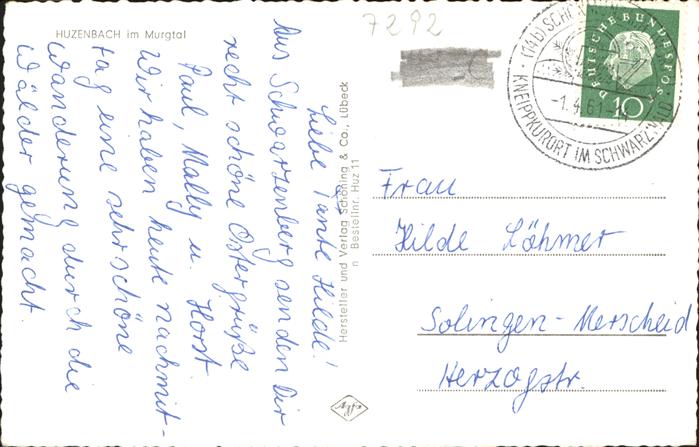 HUZENBACH im Murgtal
7292
Liebe Tante Hilde!
Aus Schwarzenberg senden Dir
recht schöne Ostergrüße
Paul, Mally u. Horst
Wir haben heute nachmit-
tag eine sehr schöne
Wanderung durch die
Wälder gemacht.
Hersteller und Verlag Schöning & Co., Lübeck
Bestellnr. Huz 11
Agfa
DEUTSCHE BUNDESPOST
10
(14b) SCH
-1.4.61
KNEIPPKURORT IM SCHWARZWALD
Frau
Hilde Löhmer
Solingen-Merscheid
Herzogstr.